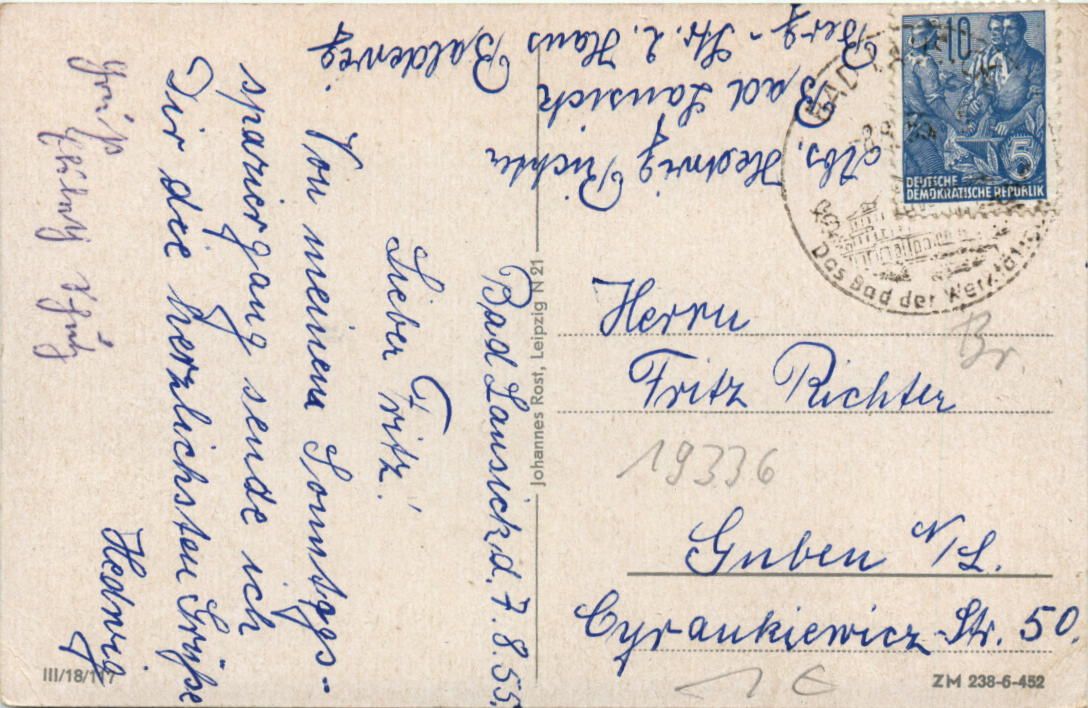 Bad Lausick d. 7.8.55.
Lieber Fritz!
Von meinem Sonntags-
spaziergang sende ich
Dir die herzlichsten Grüße
Hedwig
Gruß
Abs. Hedwig Richter
Bad Lausick
Berg-Str. 2. Haus Balderweg.
Johannes Rost, Leipzig N 21
10
5
DEUTSCHE
DEMOKRATISCHE REPUBLIK
BAD
Das Bad der
Herrn
Fritz Richter
Br.
19336
Guben N/L.
Cyrankiewicz-Str. 50.
1 €
III/18/117
ZM 238-6-452